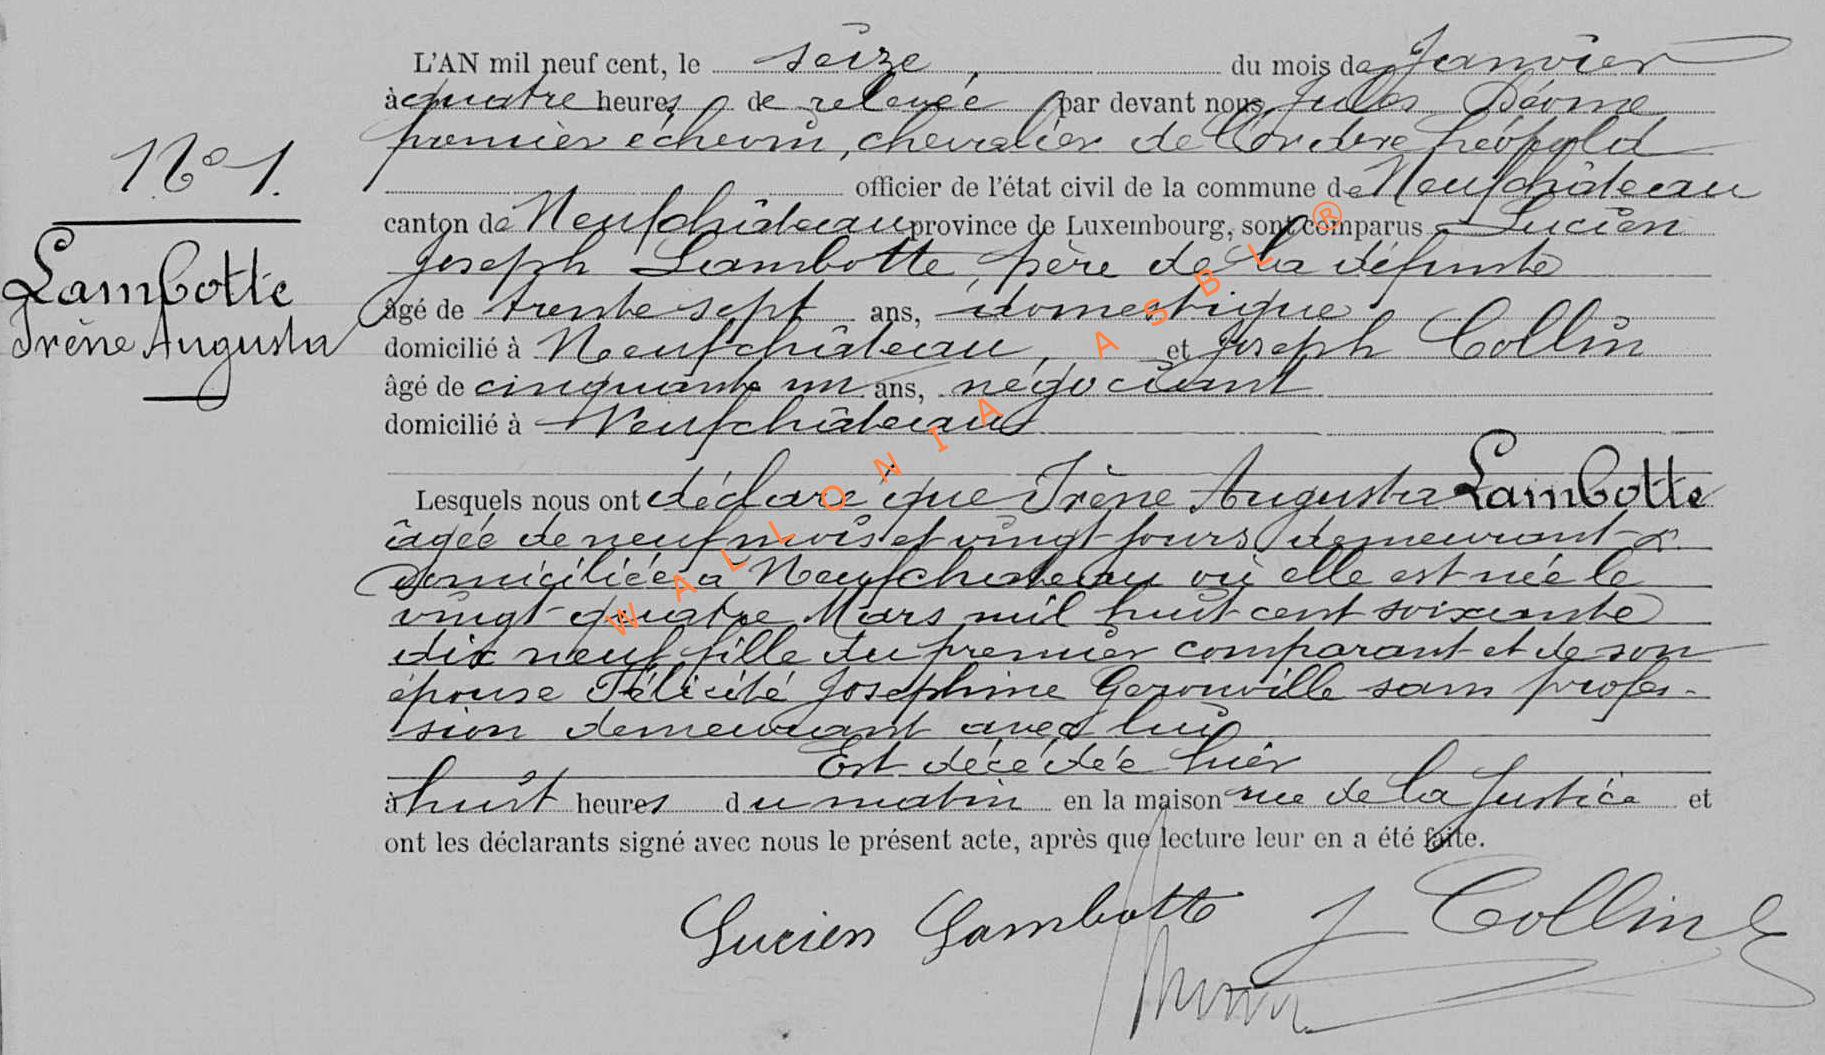 L'AN mil neuf cent, le seize, du mois de Janvier
à quatre heures de relevée par devant nous Jules
premier échevin, chevalier de l'ordre Léopold
officier de l'état civil de la commune de Neufchâteau
canton de Neufchâteau province de Luxembourg, sont comparus Lucien
Joseph Lambotte, père de la défunte
âgé de trente sept ans, domestique
domicilié à Neufchâteau, et Joseph Collin
âgé de cinquante un ans, négociant
domicilié à Neufchâteau
N° 1.
Lambotte
Irène Augusta
Lesquels nous ont déclaré que Irène Augusta Lambotte
âgée de neuf mois et vingt jours demeurant &
domiciliée à Neufchateau où elle est née le
vingt-quatre Mars mil huit cent soixante
dix neuf fille du premier comparant et de son
épouse Félicité Joséphine Gerouville sans profes-
sion demeurant avec lui
Est décédée hier
à huit heures du matin en la maison rue de la Justice et
ont les déclarants signé avec nous le présent acte, après que lecture leur en a été faite.
Lucien Lambotte J Collin
WALLONIA ASBL ®